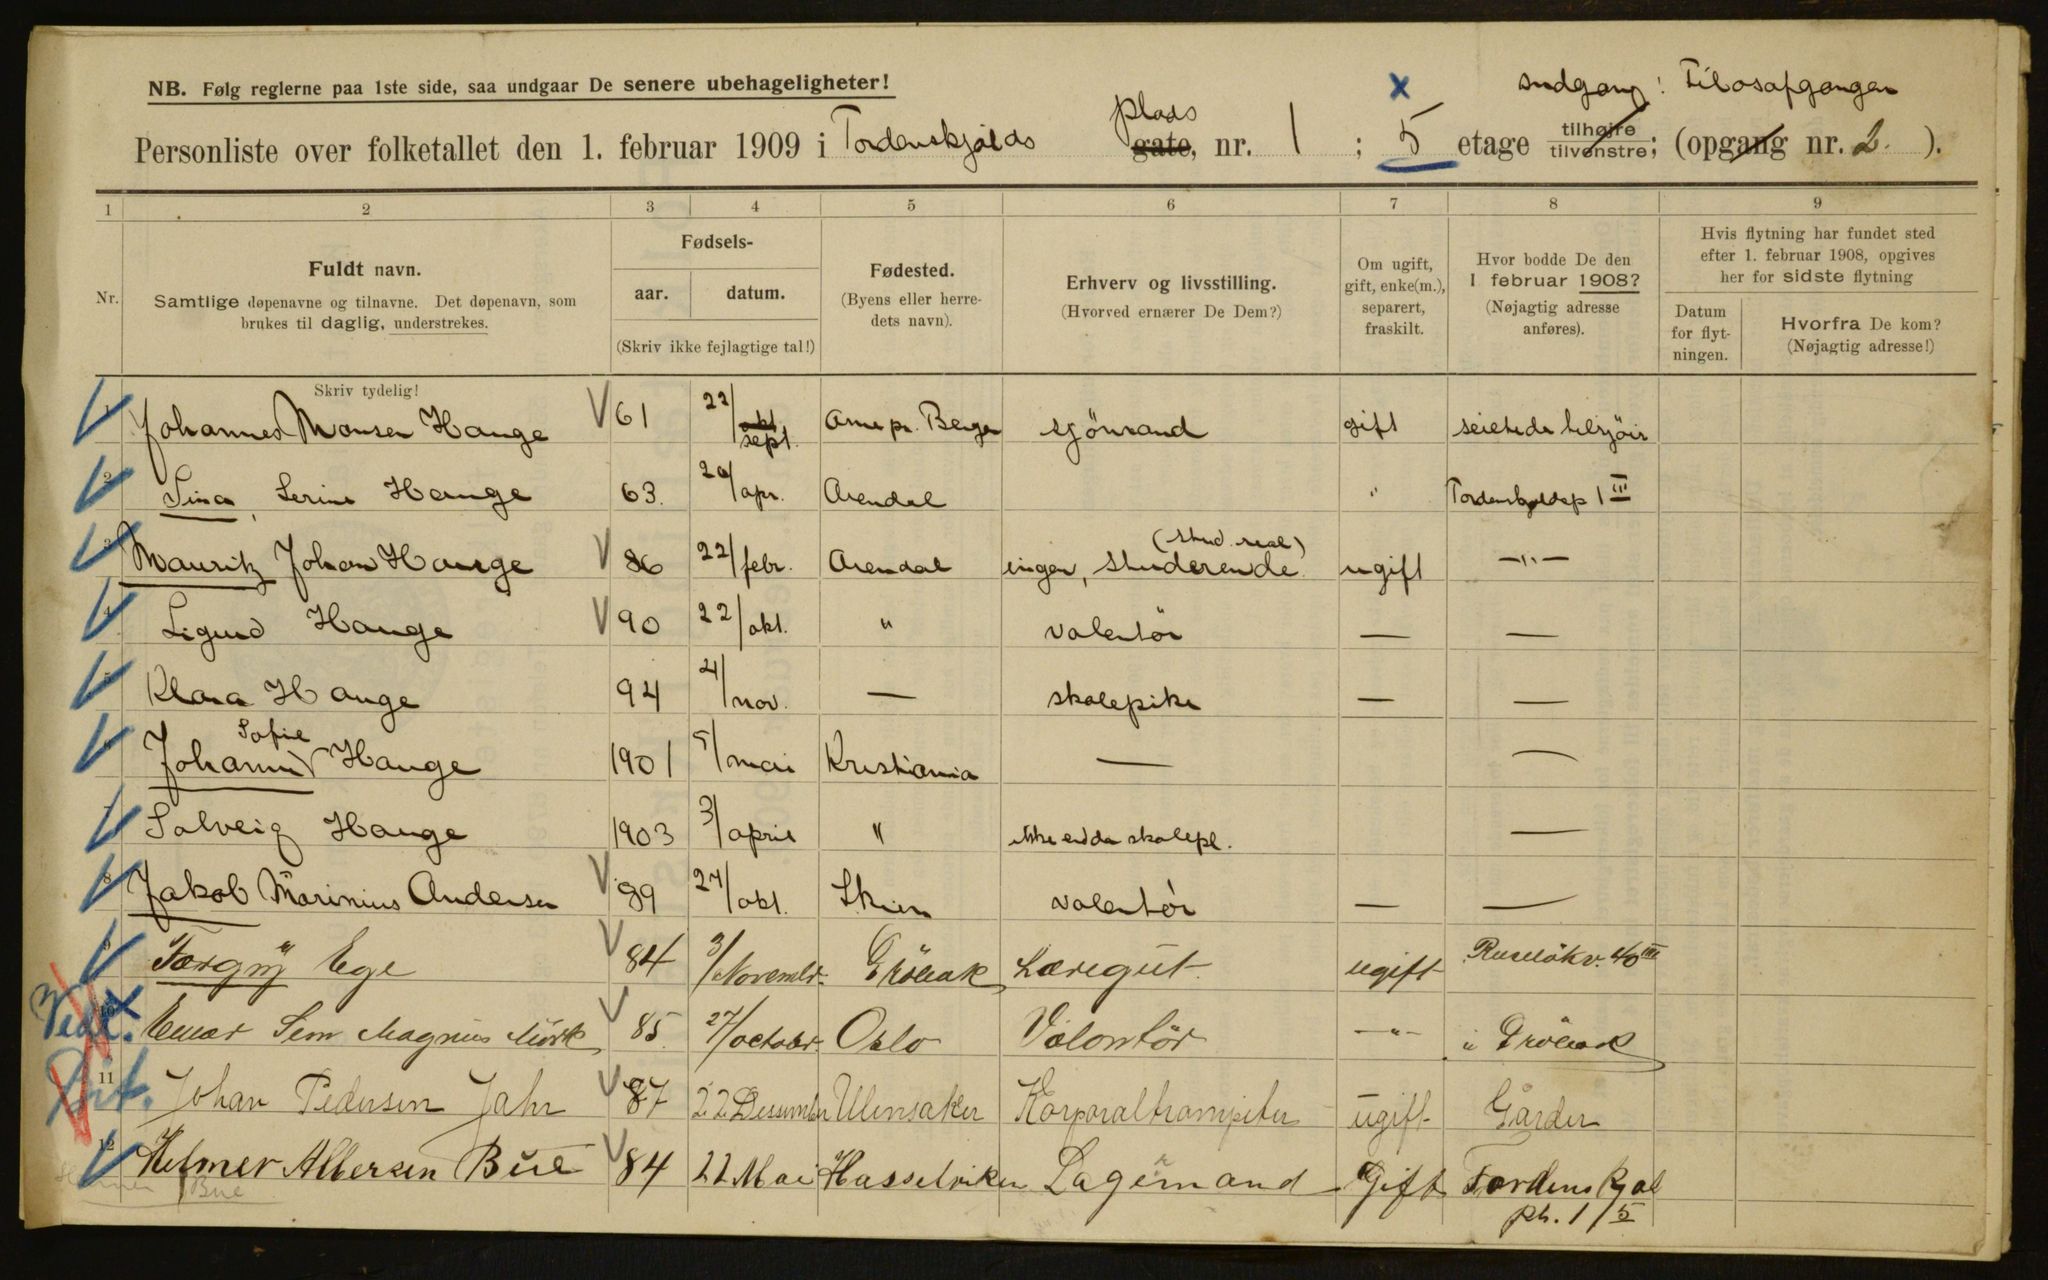 NB. Følg reglerne paa 1ste side, saa undgaar De senere ubehageligheter!
Indgang: Filosofgangen
Personliste over folketallet den 1. februar 1909 i Tordenskjolds plads gate, nr. 1 ; 5 etage tilhøjre tilvenstre; (opgang nr. 2. ).
1 2 3 4 5 6 7 8 9
Nr.
Fuldt navn.
Samtlige døpenavne og tilnavne. Det døpenavn, som
brukes til daglig, understrekes.
Skriv tydelig!
Fødsels-
aar. datum.
(Skriv ikke fejlagtige tal!)
Fødested.
(Byens eller herre-
dets navn).
Erhverv og livsstilling.
(Hvorved ernærer De Dem?)
Om ugift,
gift, enke(m.),
separert,
fraskilt.
Hvor bodde De den
1 februar 1908?
(Nøjagtig adresse
anføres).
Hvis flytning har fundet sted
efter 1. februar 1908, opgives
her for sidste flytning
Datum
for flyt-
ningen.
Hvorfra De kom?
(Nøjagtig adresse!)
1 Johannes Monsen Hauge 61 22/okt. sept. Arne pr. Bergen sjömand gift seilede tilsjöis
2 Sina, Serine Hauge 63. 20/apr. Arendal " Tordenskjoldsp 1 III
3 Mauritz Johan Hauge 86 22/febr. Arendal ingen, studerende. (stud. real) ugift —"—
4 Sigurd Hauge 90 22/okt. " volentör — —
5 Klara Hauge 94 21/nov. — skolepike — —
6 Johanne Sofie Hauge 1901 5/mai Kristiania — —
7 Solveig Hauge 1903 3/april " ikke endda skolepl. —
8 Jakob Marinius Andersen 89 27/okt. Skien volentör — —
9 Torgny Ege 84 3/Novembr. Dröbak Læregut ugift Ruselökv. 40 III
10 Einar Sem Magnus Mörk 85 27/octobr. Oslo Volontör —"— i Dröbak
11 Johan Pedersen Jahr 87 22 Desember Ulensaker Korporaltrompeter ugift Garder
12 Helmer Albersen Bue 84 22 Mai Hasselviken Lagermand Gift Tordenskjol
pl. 1/5
Bue